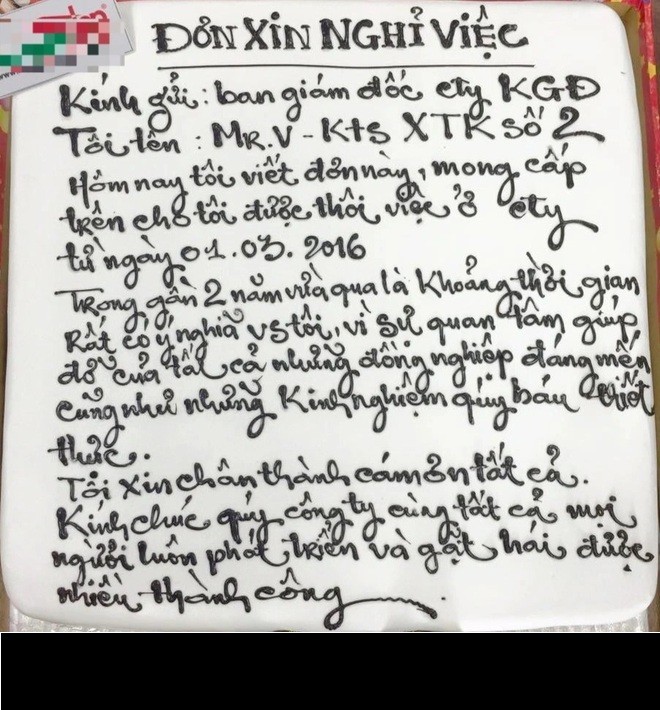 ĐƠN XIN NGHỈ VIỆC
Kính gửi: ban giám đốc cty KGĐ
Tôi tên : MR.V - Kts XTK số 2
Hôm nay tôi viết đơn này, mong cấp
trên cho tôi được thôi việc ở cty
từ ngày 01.03.2016
Trong gần 2 năm vừa qua là Khoảng thời gian
Rất có ý nghĩa vs tôi, vì sự quan tâm giúp
đỡ của tất cả những đồng nghiệp đáng mến
cũng như những Kinh nghiệm quý báu thiết
thực.
Tôi xin chân thành cám ơn tất cả.
Kính chúc quý công ty cùng tất cả mọi
người luôn phát triển và gặt hái được
nhiều thành công